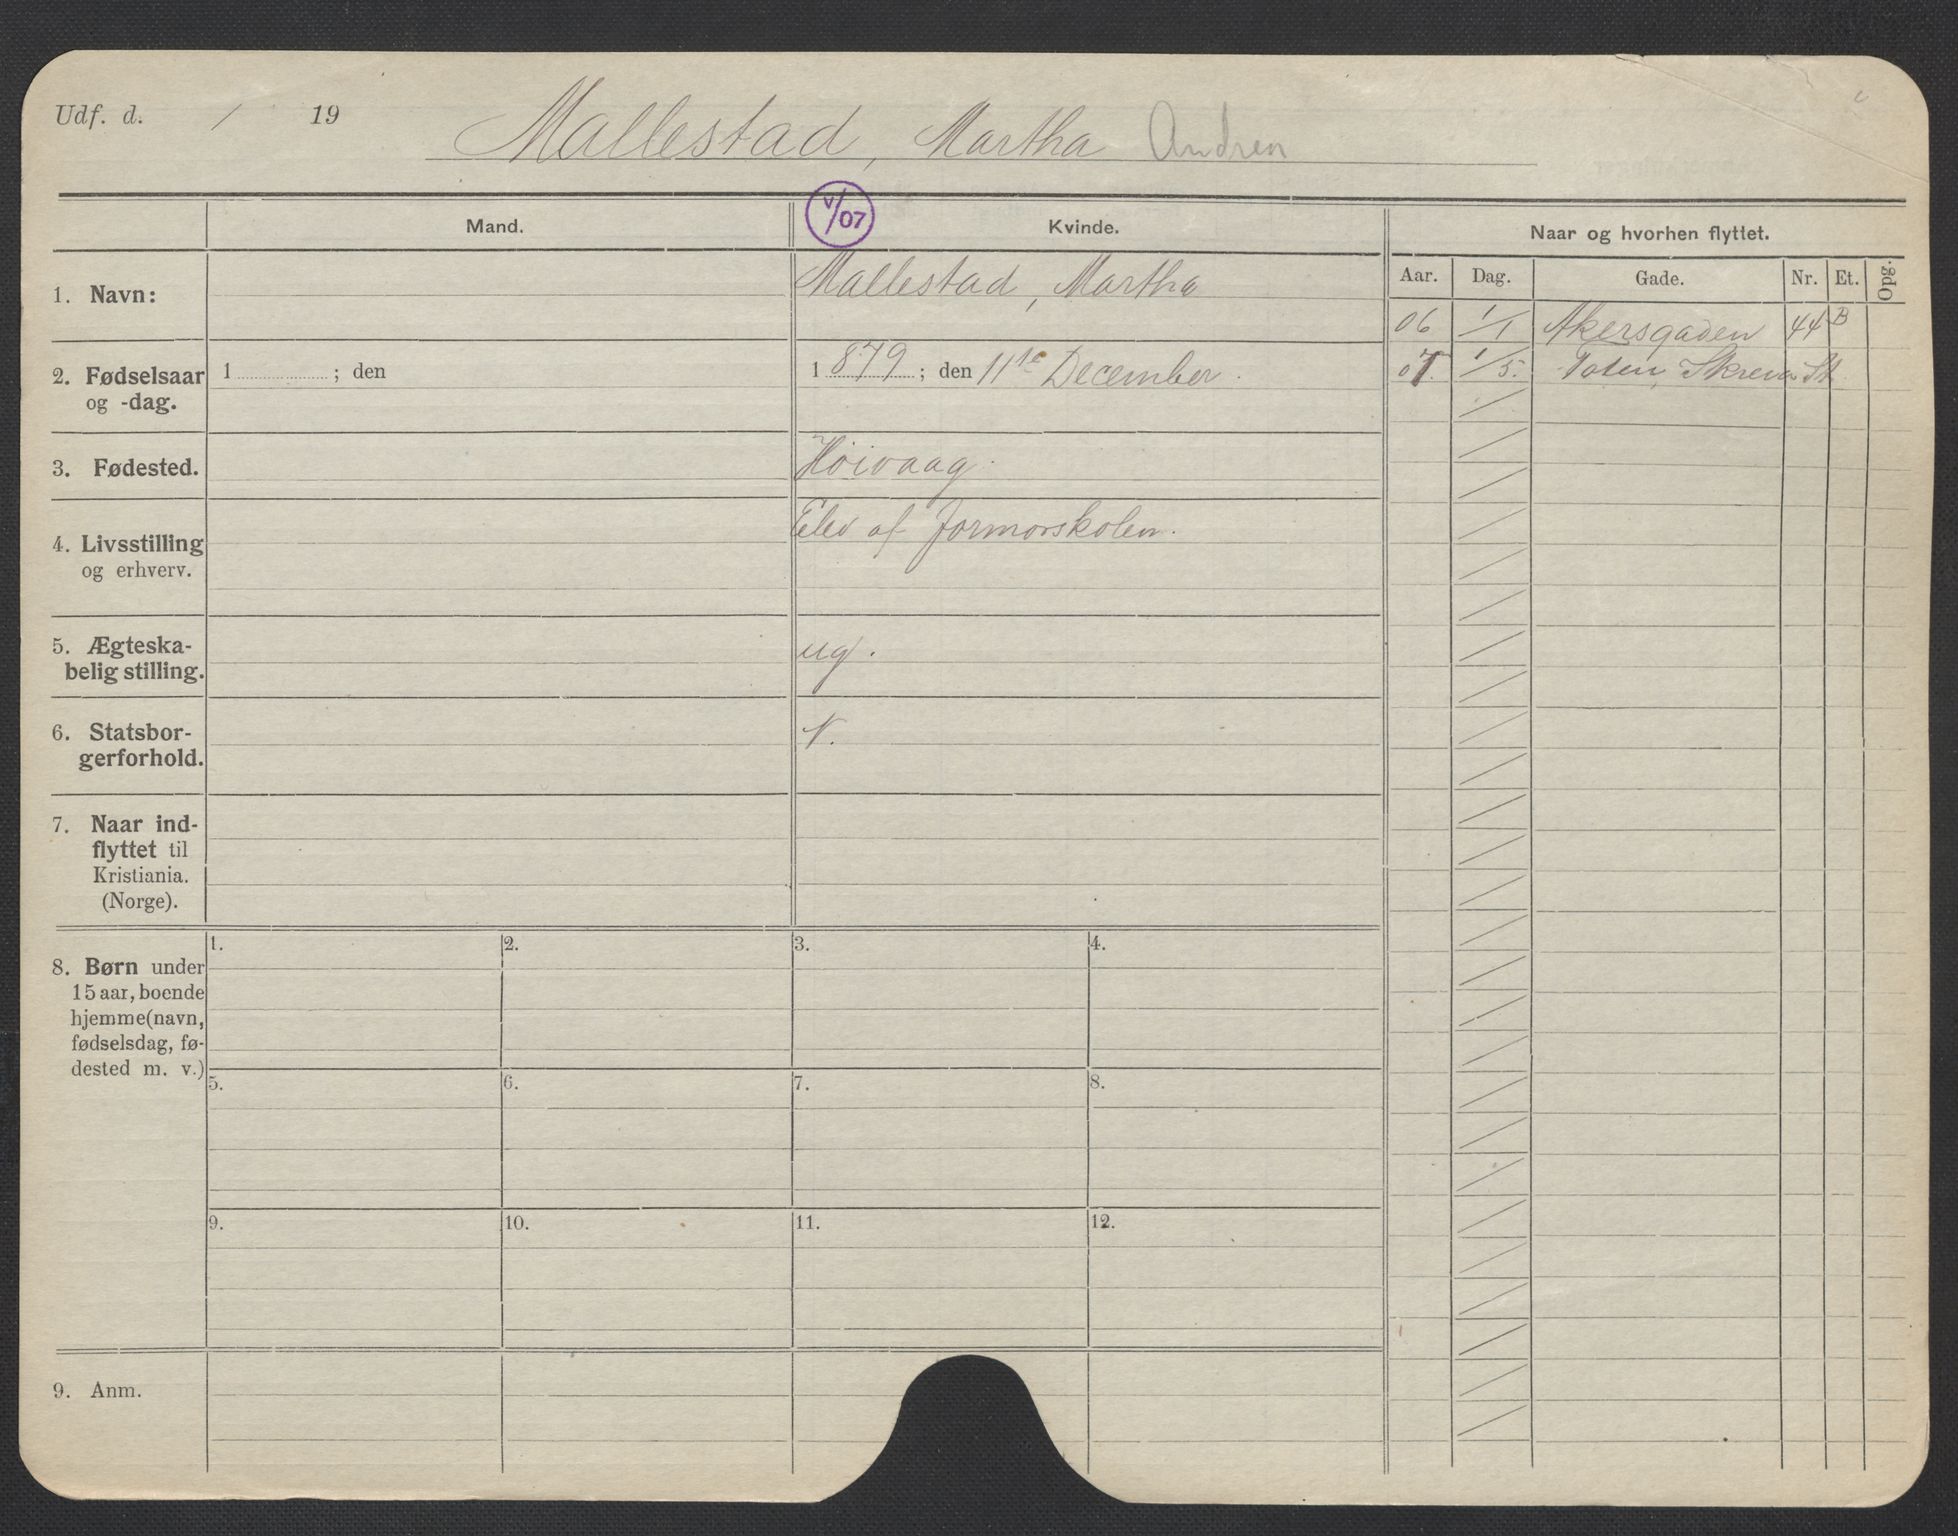 Udf. d. / 19
Mallestad, Martha Andrea
V/07
Mand.
Kvinde.
Naar og hvorhen flyttet.
Aar. Dag. Gade. Nr. Et. Opg.
1. Navn:
Mallestad, Martha
06 1/1 Akersgaden 44 B
07. 1/5. Toten, Skreia St.
2. Fødselsaar
og -dag.
1 ; den
1 879 ; den 11te December.
3. Fødested.
Høivaag.
4. Livsstilling
og erhverv.
Elev af Jormorskolen.
5. Ægteska-
belig stilling.
ug.
6. Statsbor-
gerforhold.
N.
7. Naar ind-
flyttet til
Kristiania.
(Norge).
8. Børn under
15 aar, boende
hjemme (navn,
fødselsdag, fø-
dested m. v.)
1. 2. 3. 4.
5. 6. 7. 8.
9. 10. 11. 12.
9. Anm.